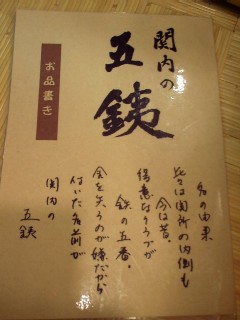 関内の
五銕
お品書き
名の由来
比々は関所の内側も
今は昔、
得意なりうづが
鉄の五番。
金を失うのが嫌だから
付いた名前が
関内の
五銕